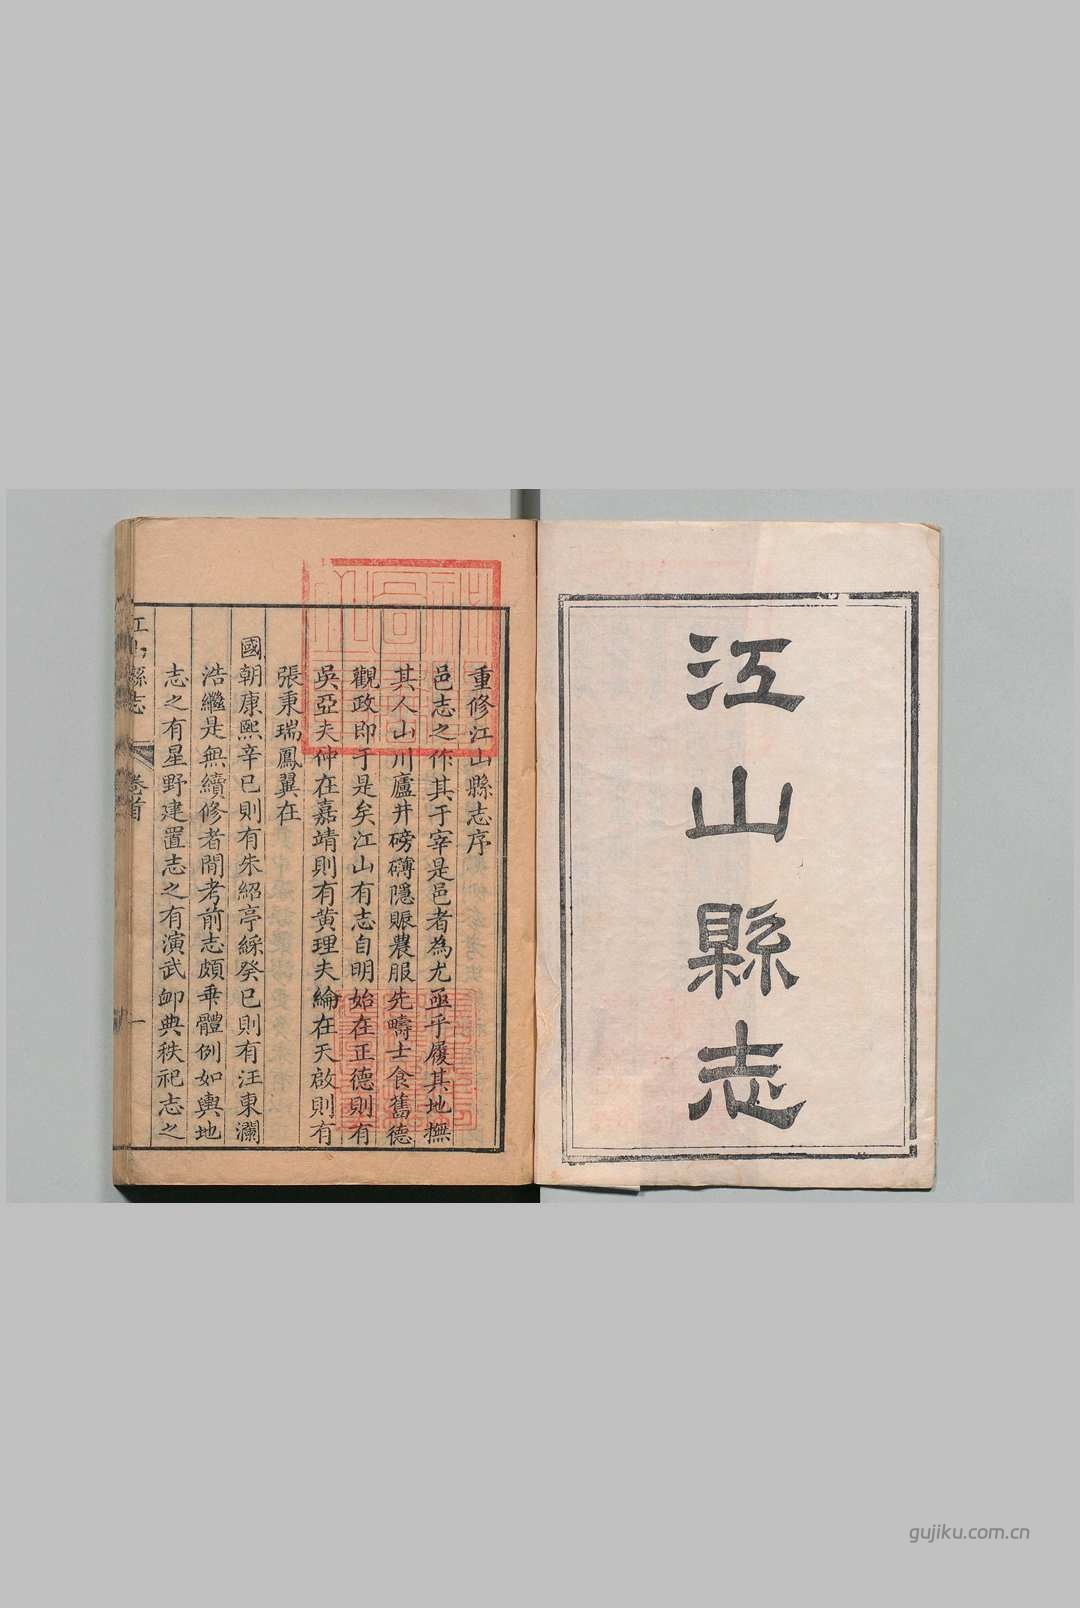 江山縣志
重修江山縣志序
邑志之作其于宰是邑者為尤亟乎履其地撫
其人山川廬井磅礴隱賑農服先疇士食舊德
觀政即于是矣江山有志自明始在正德則有
吳亞夫仲在嘉靖則有黄理夫綸在天啟則有
張秉瑞鳳翼在
國朝康熙辛巳則有朱紹亭綵癸巳則有汪東瀾
浩繼是無續修者閒考前志頗乖體例如輿地
志之有星野建置志之有演武卹典秩祀志之
江山縣志
卷首
一
gujiku.com.cn